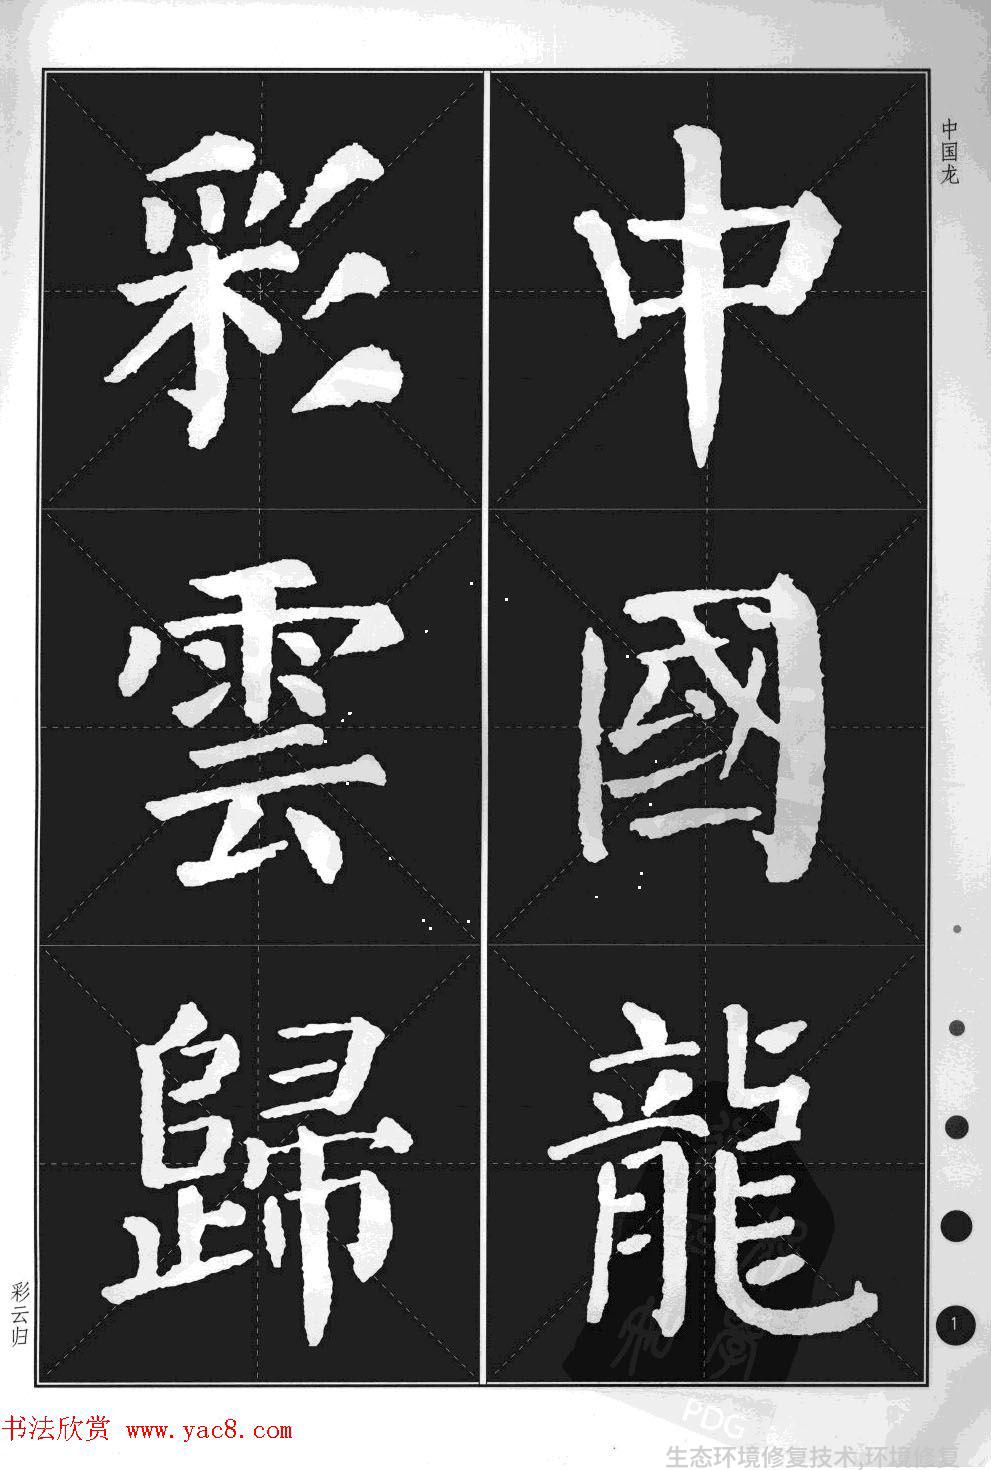 中國龍
彩雲歸
中国龙
彩云归
1
PDG
书法欣赏 www.yac8.com
生态环境修复技术,环境修复